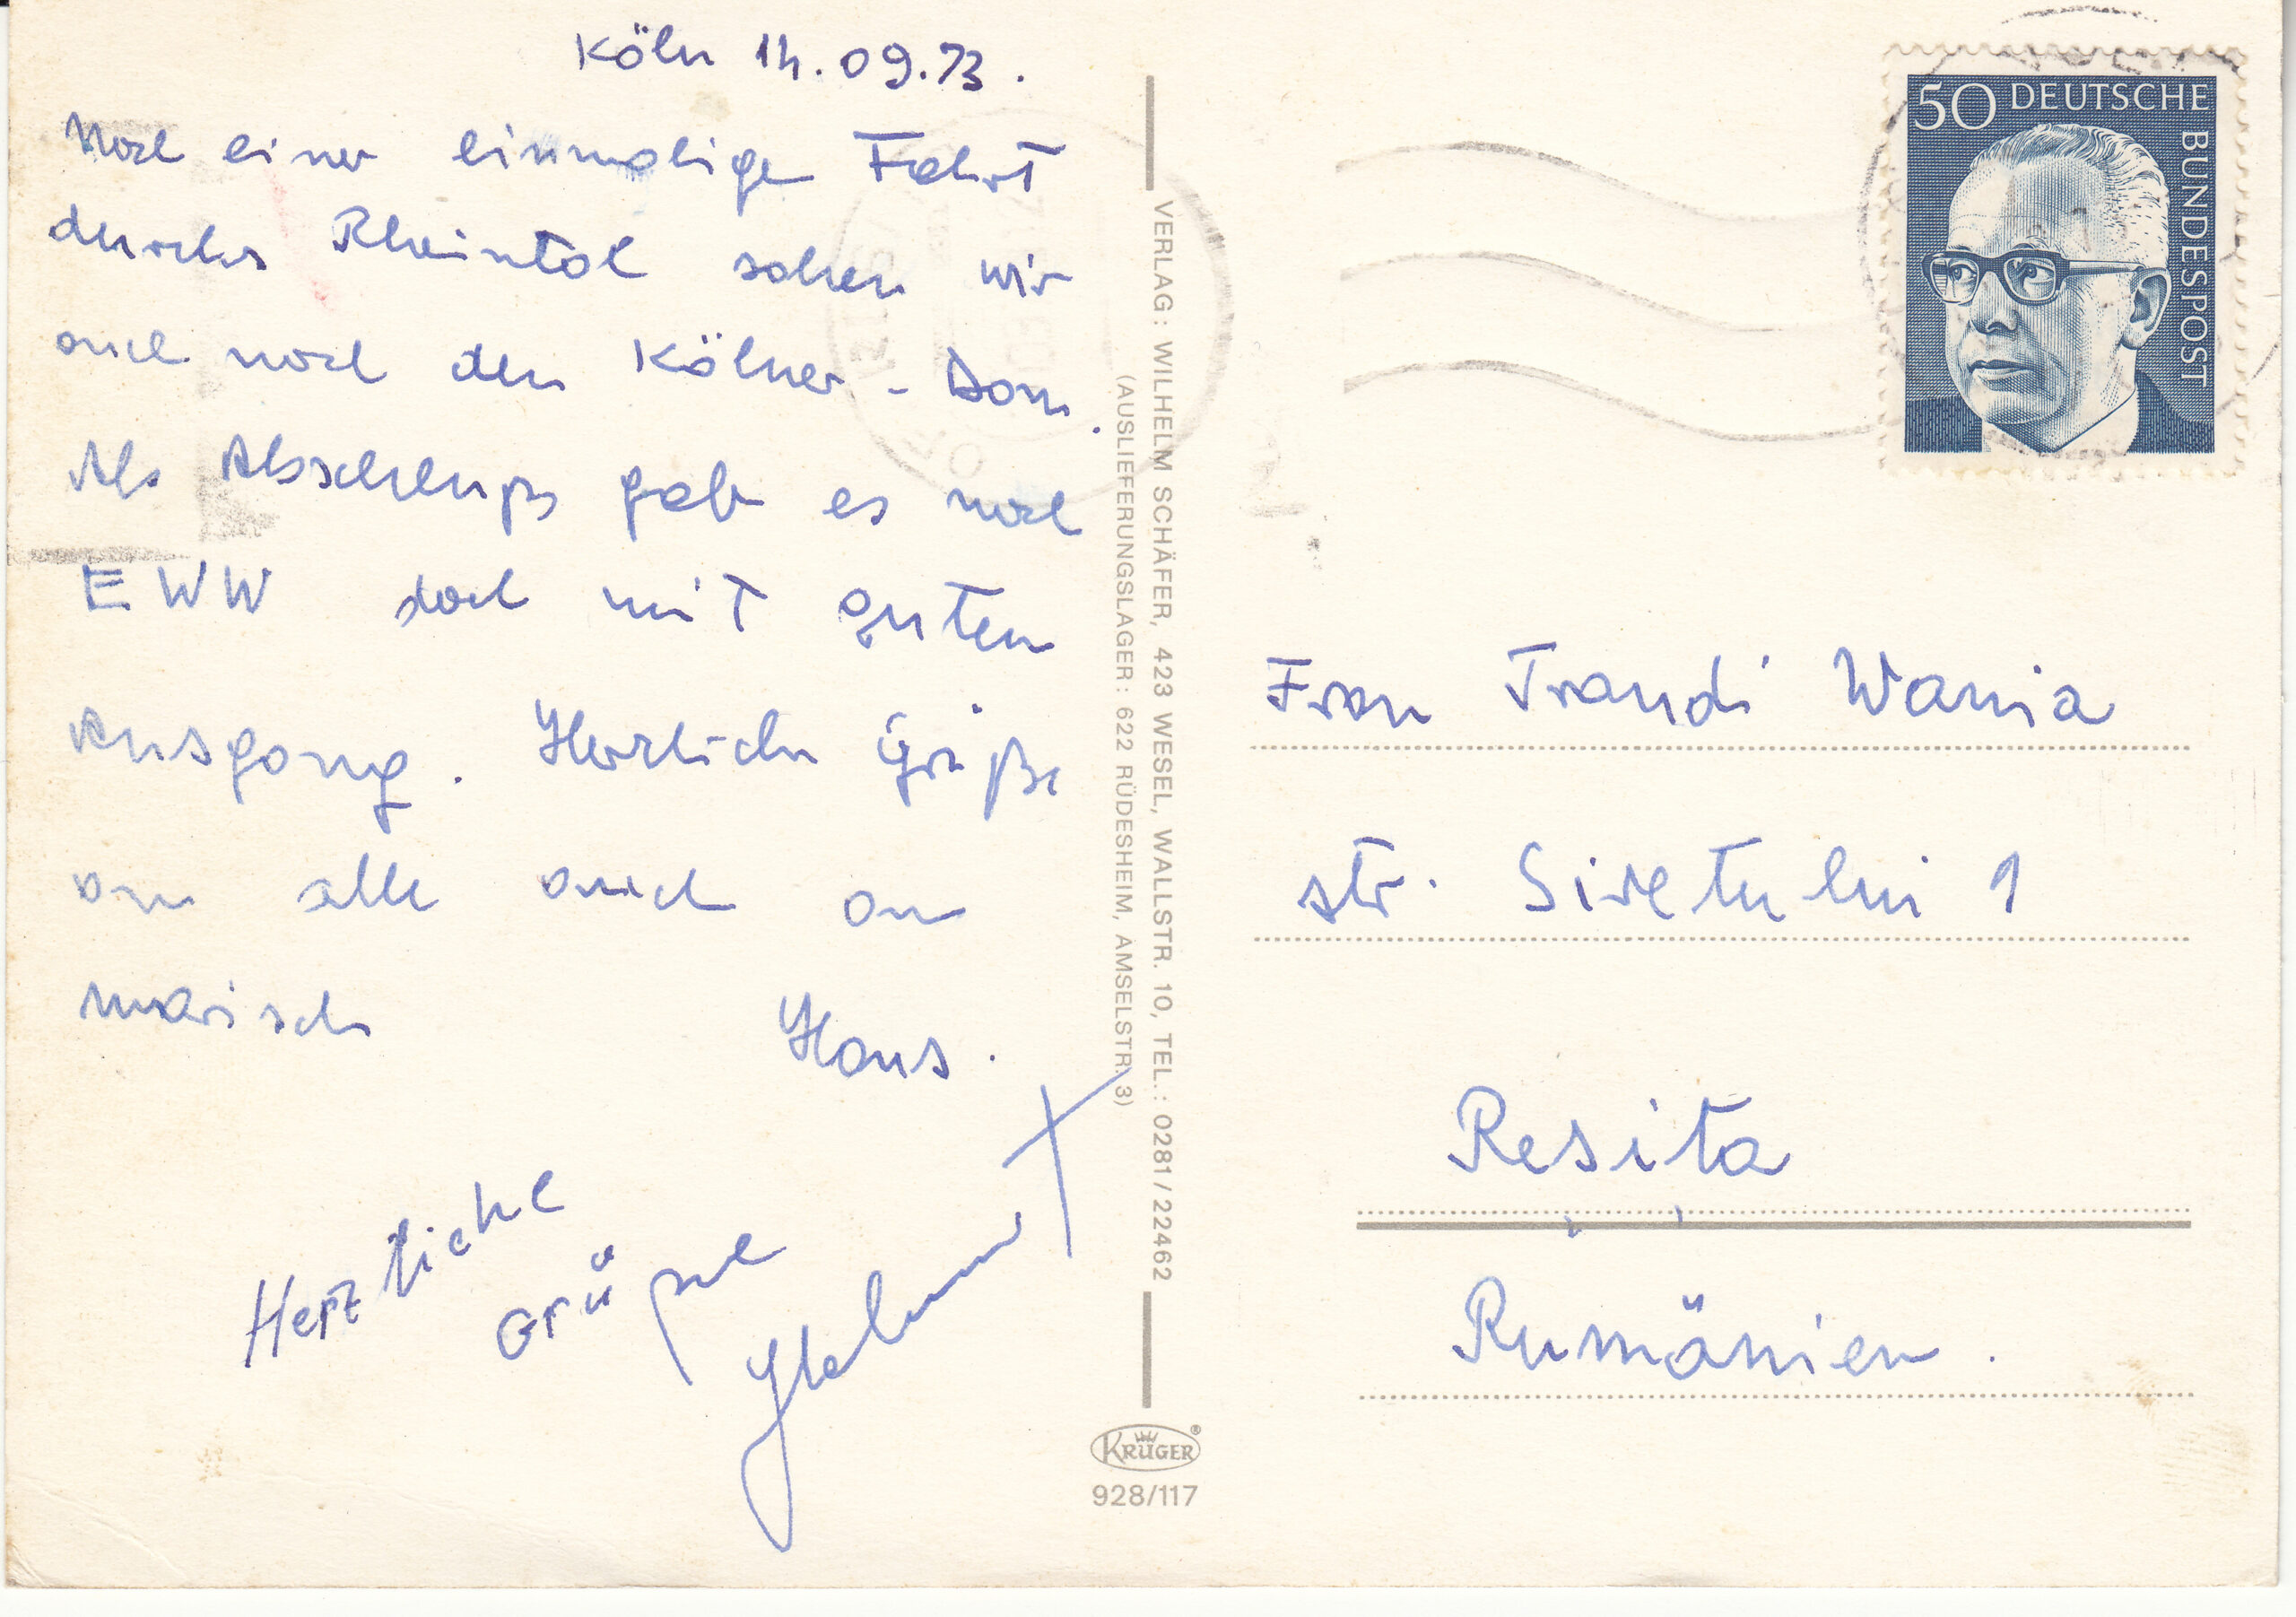 Köln 14.09.73.
Noch einer einmalige Fahrt
durchs Rheintal sahen wir
auch noch den Kölner - Dom.
Als Abschluß gab es noch
EWW doch mit guten
Ausgang. Herzliche Grüße
an alle auch an
Marisch
Hans.
Herzliche
Grüße
Helmut
VERLAG: WILHELM SCHÄFER, 423 WESEL, WALLSTR. 10, TEL.: 0281/22462
(AUSLIEFERUNGSLAGER: 622 RÜDESHEIM, AMSELSTR. 3)
KRÜGER
928/117
50 DEUTSCHE
BUNDESPOST
Frau Traudi Wania
str. Siretului 1
Reșița
Rumänien.